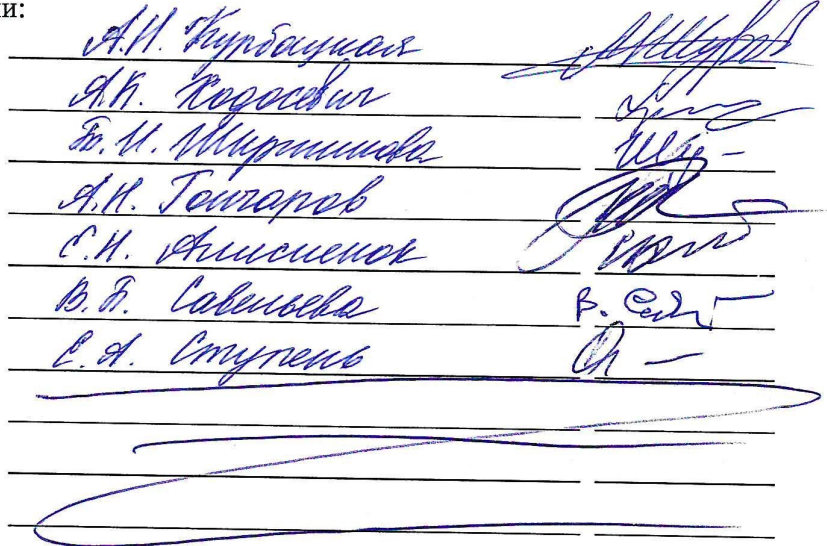 ки:
А.Н. Курбацкая
А.К. Ходосевич
Т.И. Ширшикова
А.Н. Гончаров
С.Н. Анисненок
В.Т. Савельева В. Сав
С.А. Ступень